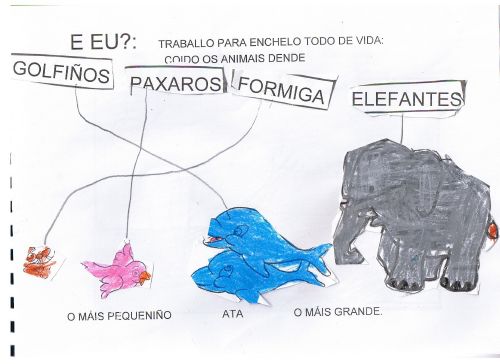 E EU?: TRABALLO PARA ENCHELO TODO DE VIDA:
COIDO OS ANIMAIS DENDE
GOLFIÑOS PAXAROS FORMIGA ELEFANTES
O MÁIS PEQUENIÑO ATA O MÁIS GRANDE.